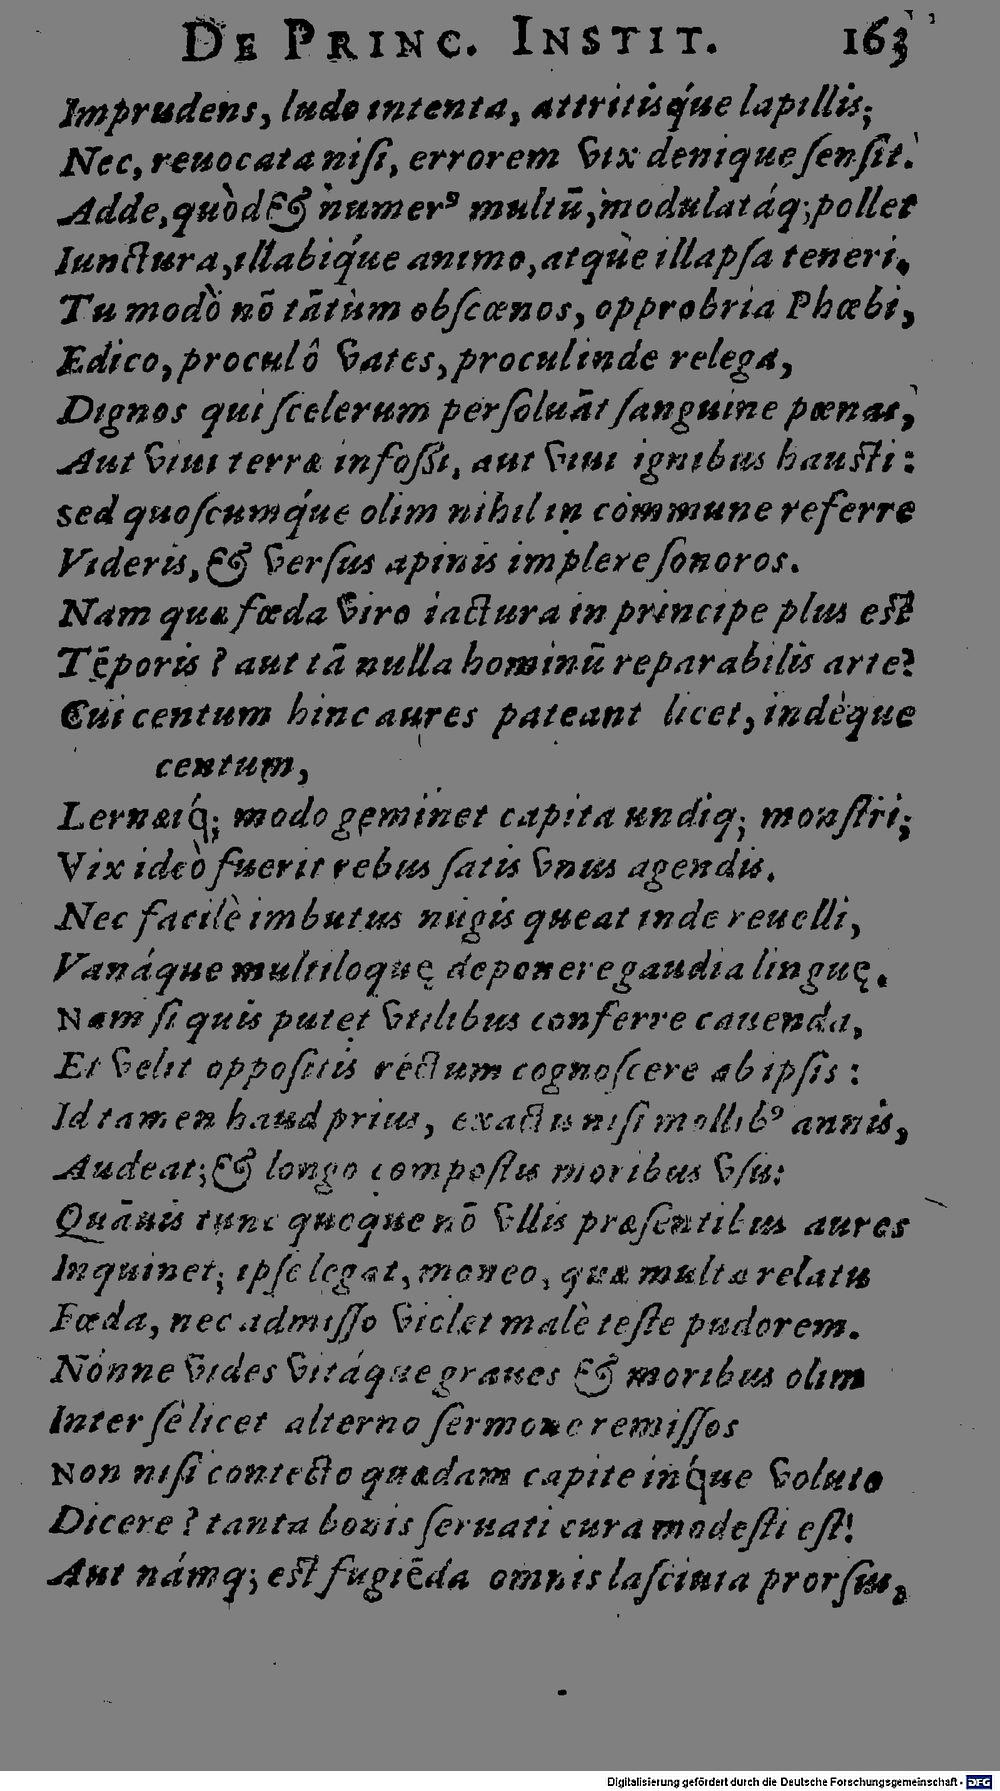 DE PRINC. INSTIT. 163
Imprudens, ludo intenta, attritisq́ue lapillis;
Nec, reuocata nisi, errorem vix denique sensit.
Adde, quòd & numerꝰ multū, modulatáq; pollet
Iunctura, illabiq́ue animo, atquè illapsa teneri.
Tu modò nō tātùm obscœnos, opprobria Phœbi,
Edico, procul ô vates, procul inde relega,
Dignos qui scelerum persoluāt sanguine pœnas,
Aut viui terræ infossi, aut viui ignibus hausti:
sed quoscumq́ue olim nihil in commune referre
Videris, & versus apinis implere sonoros.
Nam quæ fœda viro iactura in principe plus est
Tēporis? aut tā nulla hominū reparabilis arte?
Cui centum hinc aures pateant licet, indèque
centum,
Lernæiq́; modo geminet capita undiq; monstri;
Vix ideò fuerit rebus satis vnus agendis.
Nec facilè imbutus nugis queat inde reuelli,
Vanáque multiloquę deponere gaudia linguę.
Nam si quis putet vtilibus conferre cauenda,
Et velit oppositis réctum cognoscere ab ipsis:
Id tamen haud prius, exactis nisi mollibꝰ annis,
Audeat; & longo compostus moribus vsu:
Quāuis tunc quoque nō vllis præsentibus aures
Inquinet; ipse legat, moneo, quæ multa relatu
Fœda, nec admisso violet malè teste pudorem.
Nónne vides vitáque graues & moribus olim
Inter sè licet alterno sermone remissos
Non nisi contecto quædam capite inq́ue voluto
Dicere? tanta bonis seruati cura modesti est!
Aut námq; est fugiēda omnis lasciuia prorsus,
Digitalisierung gefördert durch die Deutsche Forschungsgemeinschaft - DFG